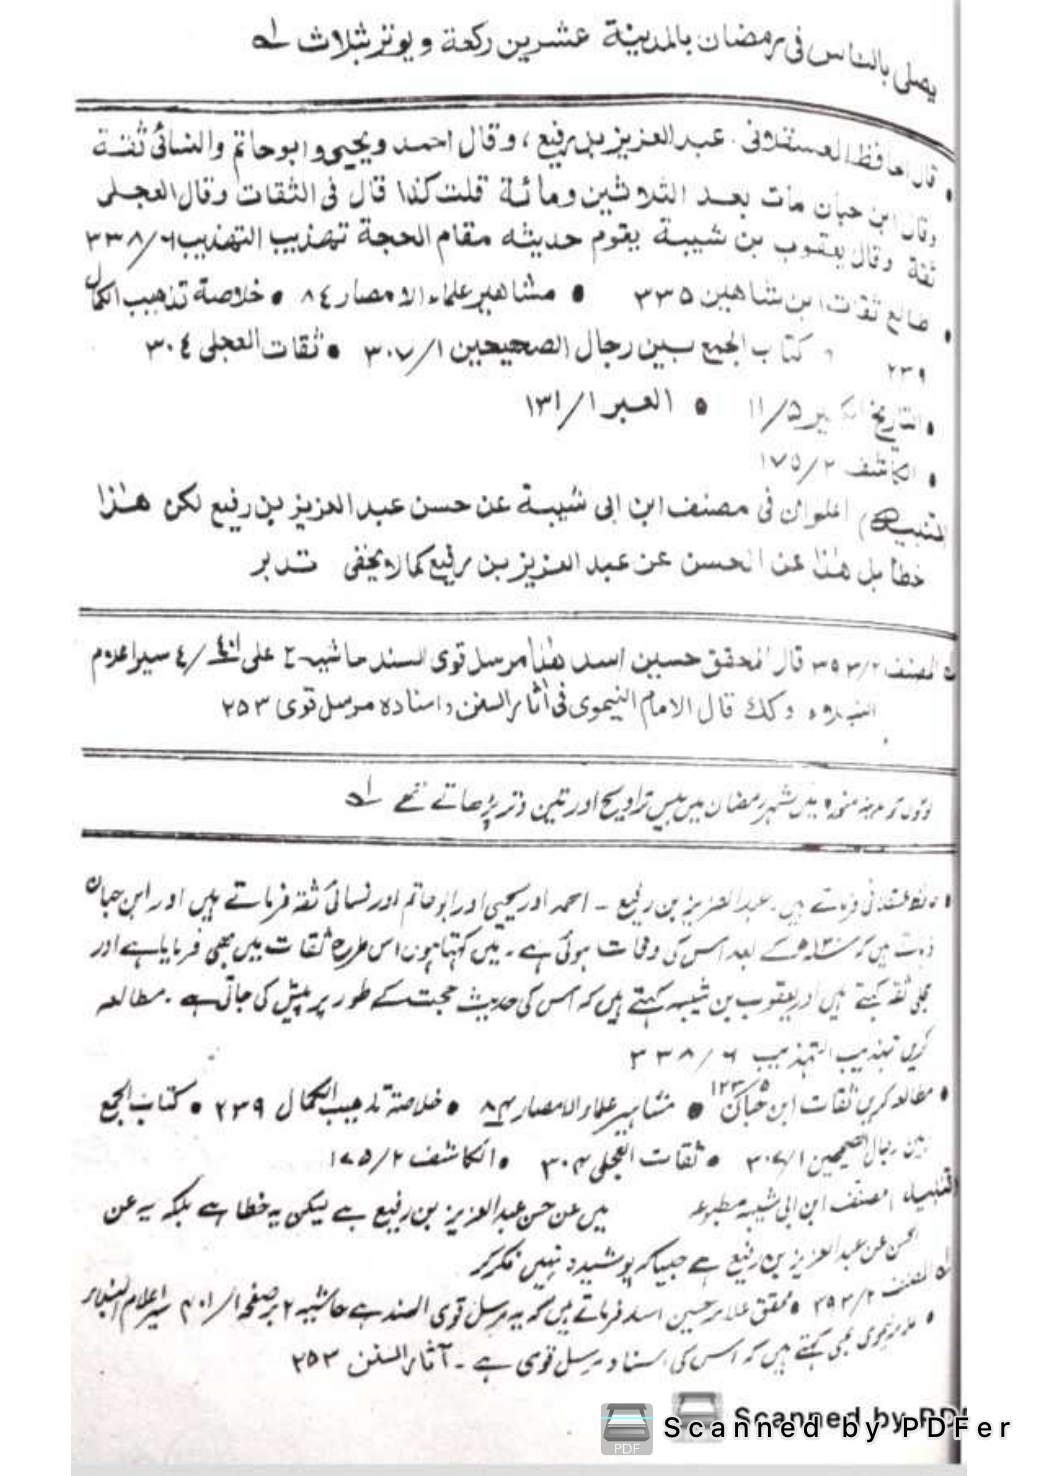 يصلى بالناس فى رمضان بالمدينة عشرين ركعة ويوتر بثلاث اه
• قال الحافظ العسقلانى . عبد العزيز بن رفيع ، وقال احمد ويحيى وابو حاتم والنسائى ثقة
وقال ابن حبان مات بعد الثلاثين ومائة قلت كذا قال فى الثقات وقال العجلى
ثقة وقال يعقوب بن شيبة يقوم حديثه مقام الحجة تهذيب التهذيب ٦/٣٣٨
• طالع ثقات ابن شاهين ٣٣٥ • مشاهير علماء الامصار ٨٤ • خلاصة تذهيب الكمال
٢٣٩ • كتاب الجمع بين رجال الصحيحين ١/٣٠٧ • ثقات العجلى ٣٠٤
• التاريخ الكبير ٥/١١ • العبر ١/١٣١
• الكاشف ٢/١٧٥
(تنبيه) اعلم ان فى مصنف ابن ابى شيبة عن حسن عبد العزيز بن رفيع لكن هذا
خطأ بل هذا عن الحسن عن عبد العزيز بن رفيع كما لا يخفى تدبر
المصنف ٢/٣٩٣ قال المحقق حسين اسد هذا مرسل قوى السند حاشيه ٢ على /٤ سير اعلام
النبلاء وكذلك قال الامام النيموى فى آثار السنن واسناده مرسل قوى ٢٥٣
لوگوں کو مدینہ منورہ میں شہر رمضان میں بیس تراویح اور تین وتر پڑھاتے تھے اه
• حافظ عسقلانی فرماتے ہیں۔ عبدالعزیز بن رفیع ۔ احمد اور یحییٰ اور ابو حاتم اور نسائی ثقہ فرماتے ہیں اور ابن حبان
ہیں کہ ۱۳۰ھ کے بعد اس کی وفات ہوئی ہے۔ میں کہتا ہوں اس طرح ثقات میں بھی فرمایا ہے اور
عجلی ثقہ کہتے ہیں اور یعقوب بن شیبہ کہتے ہیں کہ اس کی حدیث حجت کے طور پر پیش کی جاتی ہے ۔ مطالعہ
کریں تہذیب التہذیب ٦/٣٣٨
• مطالعہ کریں ثقات ابن حبان ٥/١٢٣ • مشاہیر علماء الامصار ٨٤ • خلاصة تذهيب الكمال ٢٣٩ • کتاب الجمع
بین رجال الصحیحین ١/٣٠٧ • ثقات العجلی ٣٠٤ • الکاشف ٢/١٧٥
تنبیہ مصنف ابن ابی شیبہ مطبوعہ میں عن حسن عبدالعزیز بن رفیع ہے لیکن یہ خطا ہے بلکہ یہ عن
الحسن عن عبدالعزیز بن رفیع ہے جیسا کہ پوشیدہ نہیں فکر کر
المصنف ٢/٣٩٣ • محقق علامہ حسین اسد فرماتے ہیں کہ یہ مرسل قوی السند ہے حاشیہ ٢ بر صفحہ سیر اعلام النبلاء
• علامہ نیموی بھی کہتے ہیں کہ اس کی اسناد مرسل قوی ہے ۔ آثار السنن ٢٥٣
Scanned by PDF
PDF
Scanned by PDFer